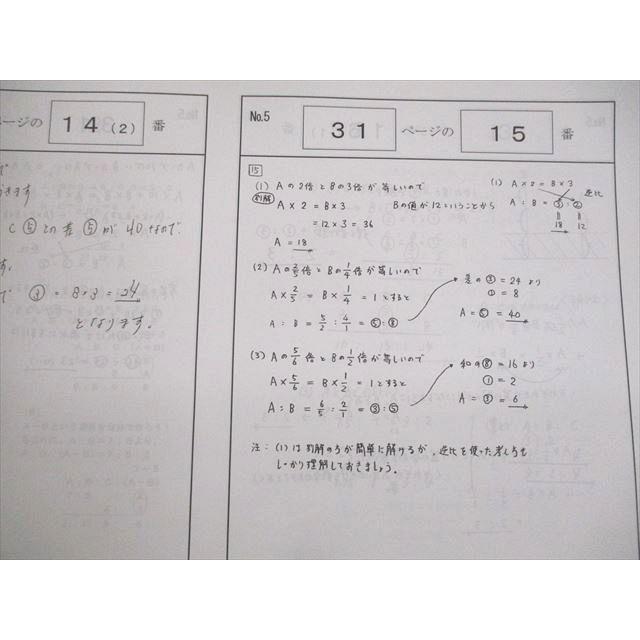 ページの 14(2) 番
きます
C⑤との差⑤が40なので
す。
で ③=8×3=24
となります。
No.5 31 ページの 15 番
15
(1) Aの2倍とBの3倍が等しいので
別解 A×2=B×3 Bの値が12ということから
=12×3=36
A=18
(1) A×2=B×3 逆比
A:B=③:②
18 12
(2) Aの2/5倍とBの1/4倍が等しいので
A×2/5=B×1/4=1とすると
A:B=5/2:4/1=⑤:⑧
差の③=24より
①=8
A=⑤=40
(3) Aの5/6倍とBの1/2倍が等しいので
A×5/6=B×1/2=1とすると
A:B=6/5:2/1=③:⑤
和の⑧=16より
①=2
A=③=6
注:(1)は別解の方が簡単に解けるが、逆比を使った考え方も
しっかり理解しておきましょう。